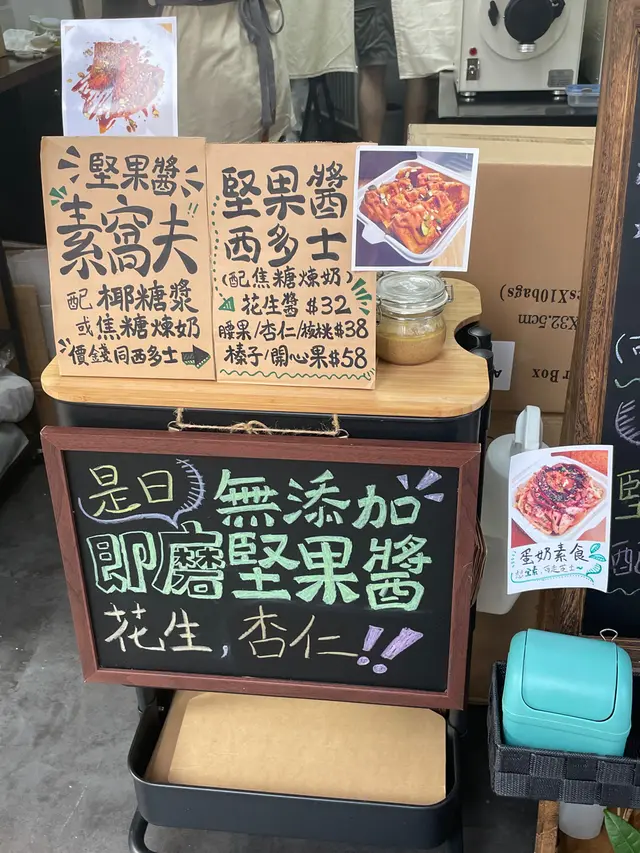 堅果醬
素窩夫
配椰糖漿
或焦糖煉奶
價錢同西多士
堅果醬
西多士
(配焦糖煉奶)
花生醬 $32
腰果/杏仁/核桃$38
榛子/開心果$58
是日 無添加
即磨堅果醬
花生, 杏仁!!
蛋奶素食
esX10bags)
X32.5cm
r Box